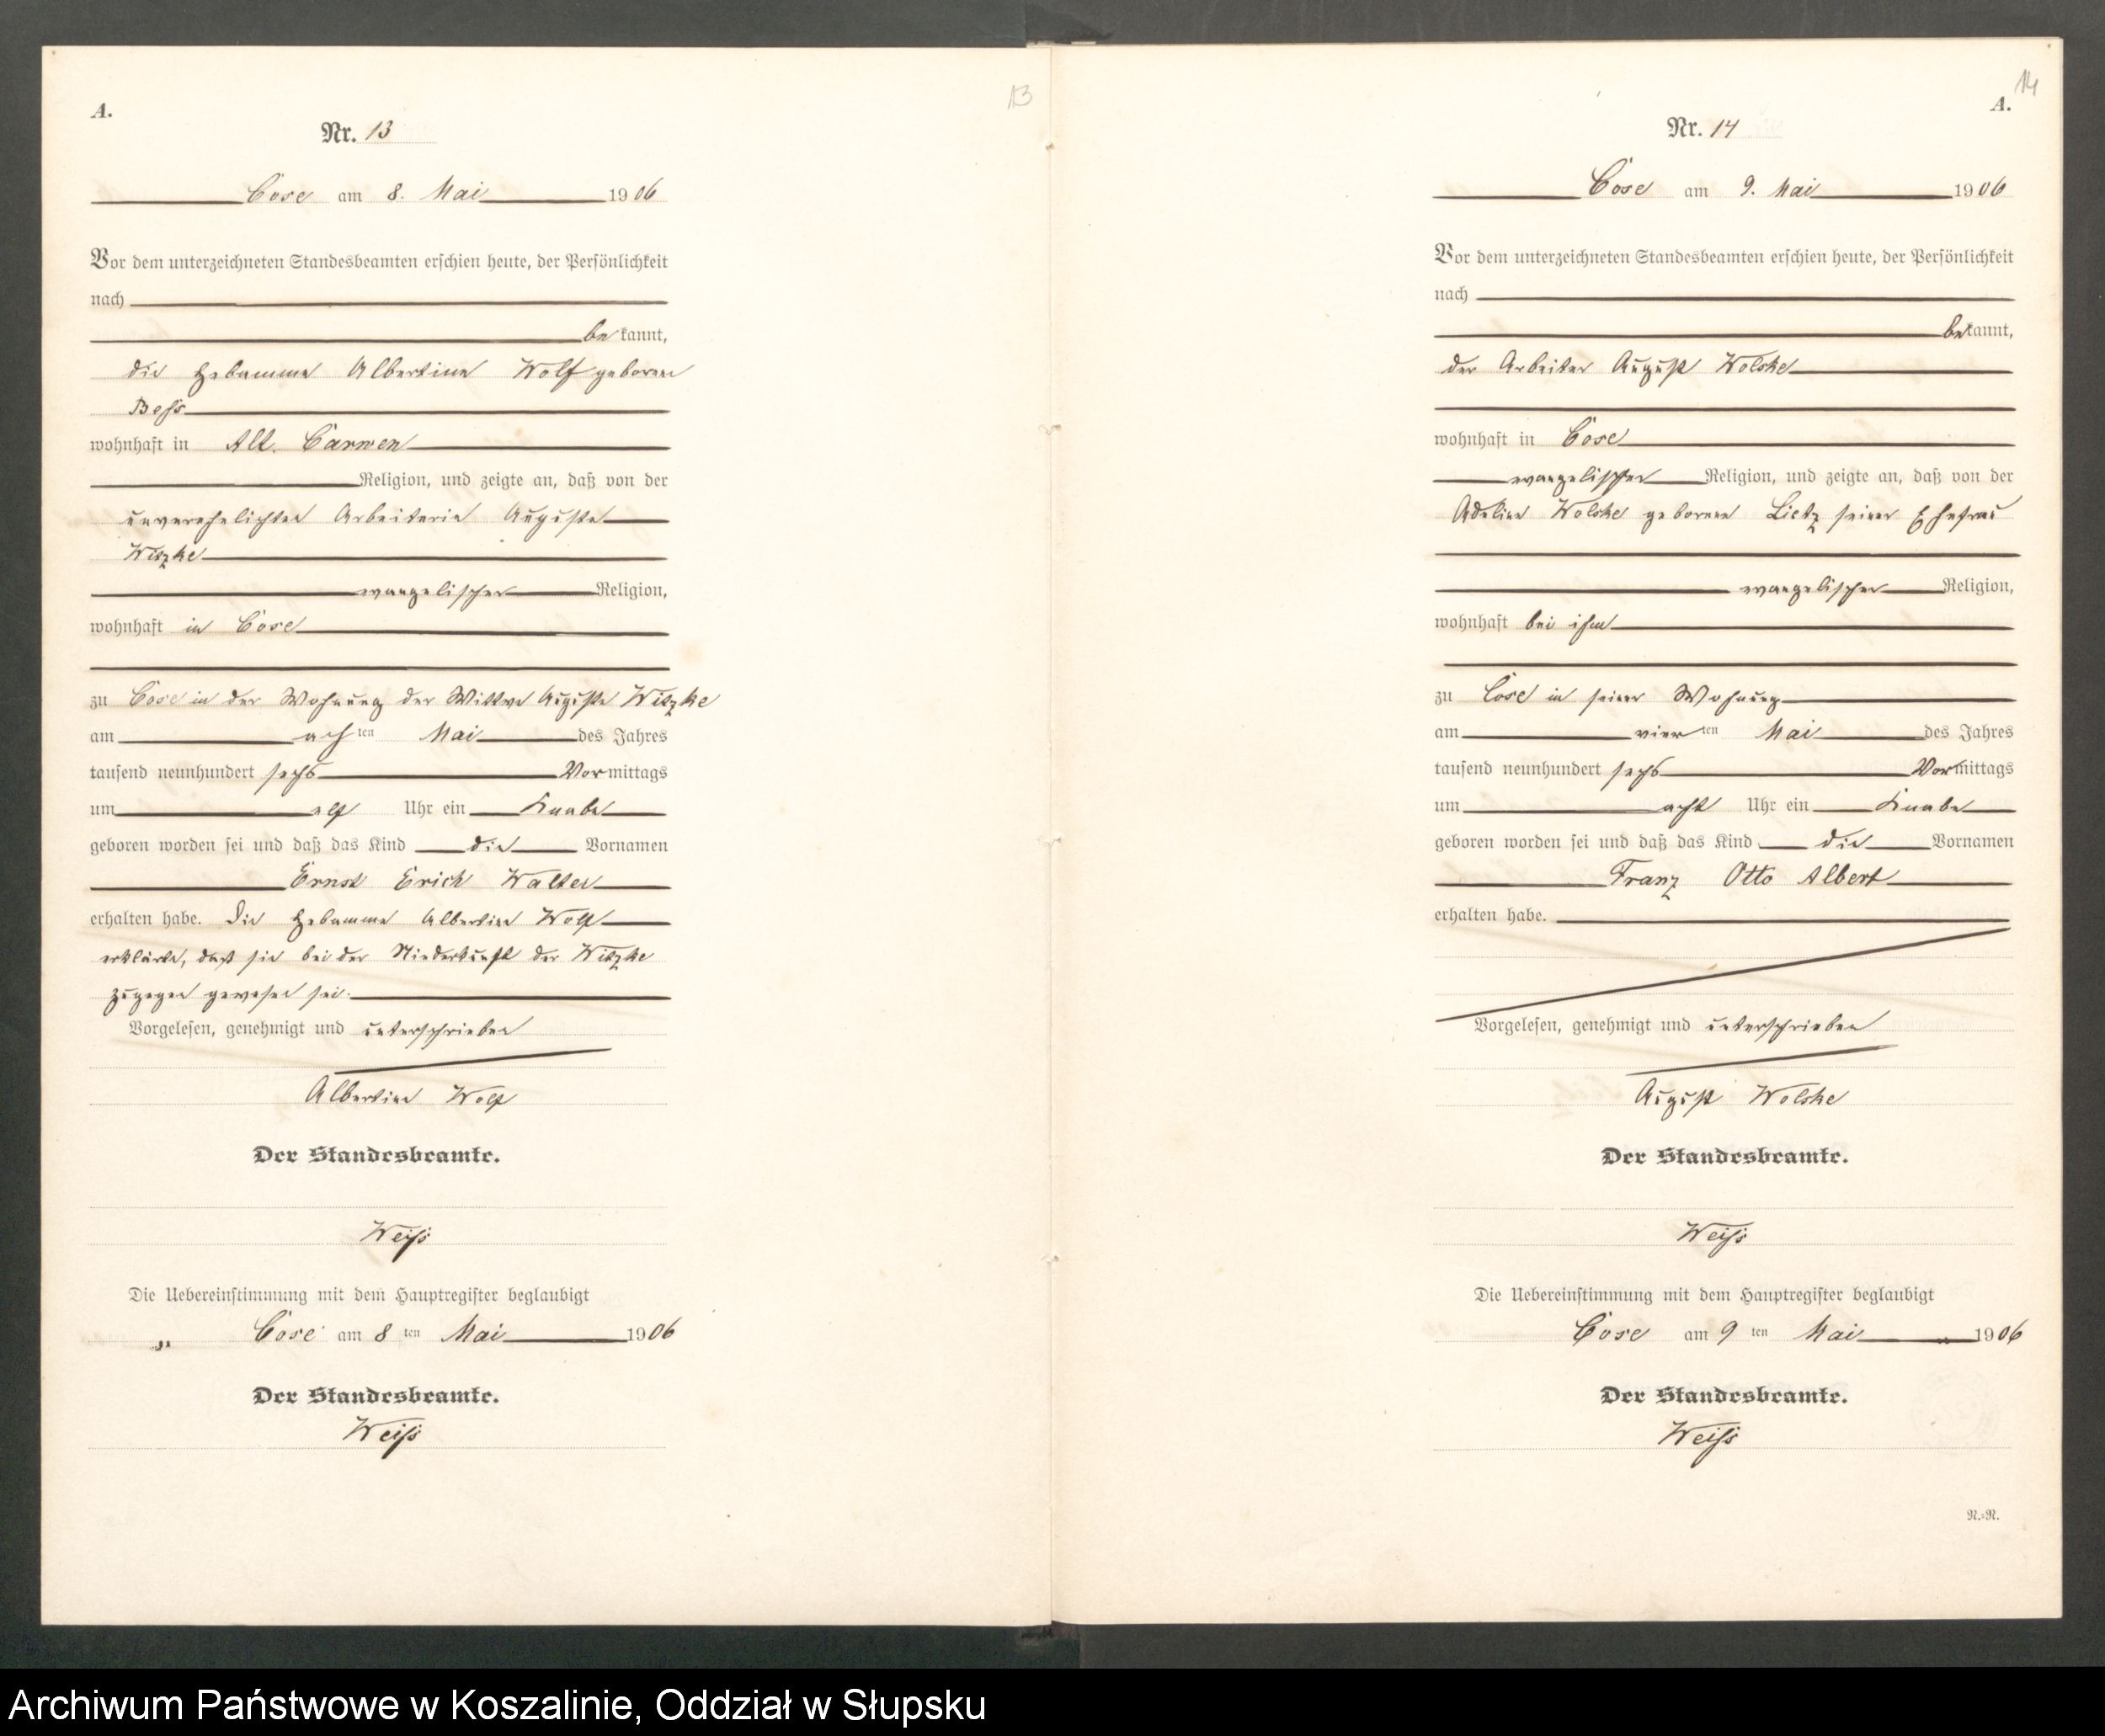 13
A.
Nr. 13
Cose am 8. Mai 1906
Vor dem unterzeichneten Standesbeamten erschien heute, der Persönlichkeit
nach
bekannt,
die Hebamme Albertine Wolf geborene
Bess
wohnhaft in Alt. Carwen
Religion, und zeigte an, daß von der
unverehelichten Arbeiterin Auguste
Witzke
evangelischer Religion,
wohnhaft in Cose
zu Cose in der Wohnung der Wittwe Auguste Witzke
am achten Mai des Jahres
tausend neunhundert sechs Vormittags
um elf Uhr ein Knabe
geboren worden sei und daß das Kind die Vornamen
Ernst Erich Walter
erhalten habe. Die Hebamme Albertine Wolf
erklärte, daß sie bei der Niederkunft der Witzke
zugegen gewesen sei.
Vorgelesen, genehmigt und unterschrieben
Albertine Wolf
Der Standesbeamte.
Weiß
Die Uebereinstimmung mit dem Hauptregister beglaubigt
Cose am 8 ten Mai 1906
Der Standesbeamte.
Weiß
14
A.
Nr. 14
Cose am 9. Mai 1906
Vor dem unterzeichneten Standesbeamten erschien heute, der Persönlichkeit
nach
bekannt,
der Arbeiter August Wolske
wohnhaft in Cose
evangelischer Religion, und zeigte an, daß von der
Adeline Wolske geborene Lietz seiner Ehefrau
evangelischer Religion,
wohnhaft bei ihm
zu Cose in seiner Wohnung
am vierten Mai des Jahres
tausend neunhundert sechs Vormittags
um acht Uhr ein Knabe
geboren worden sei und daß das Kind die Vornamen
Franz Otto Albert
erhalten habe.
Vorgelesen, genehmigt und unterschrieben
August Wolske
Der Standesbeamte.
Weiß
Die Uebereinstimmung mit dem Hauptregister beglaubigt
Cose am 9 ten Mai 1906
Der Standesbeamte.
Weiß
N.=N.
Archiwum Państwowe w Koszalinie, Oddział w Słupsku